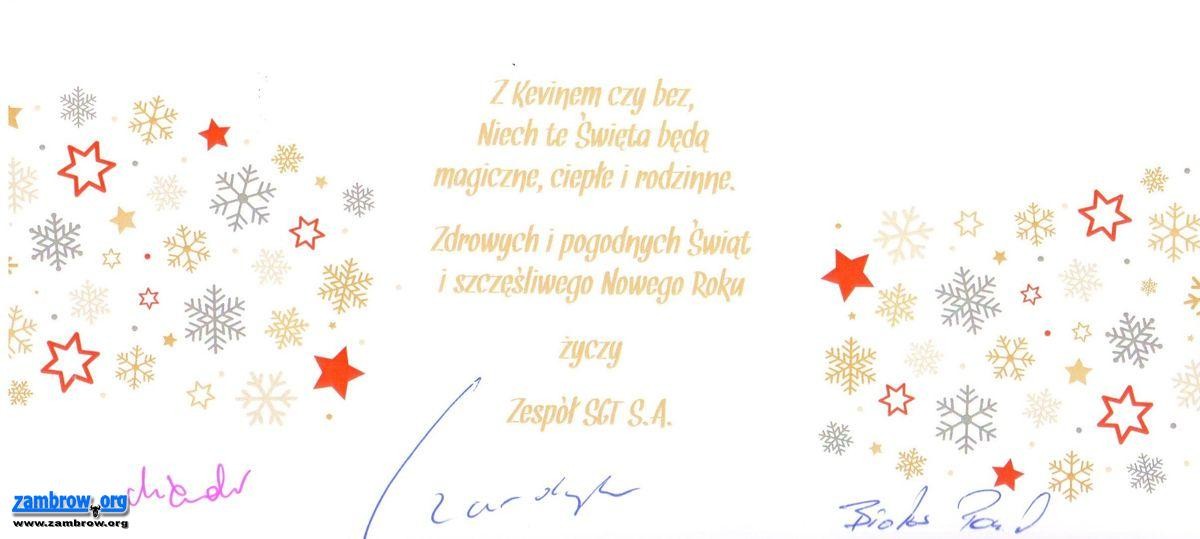 Z Kevinem czy bez,
Niech te Święta będą
magiczne, ciepłe i rodzinne.
Zdrowych i pogodnych Świąt
i szczęśliwego Nowego Roku
życzy
Zespół SGT S.A.
zambrow.org
www.zambrow.org